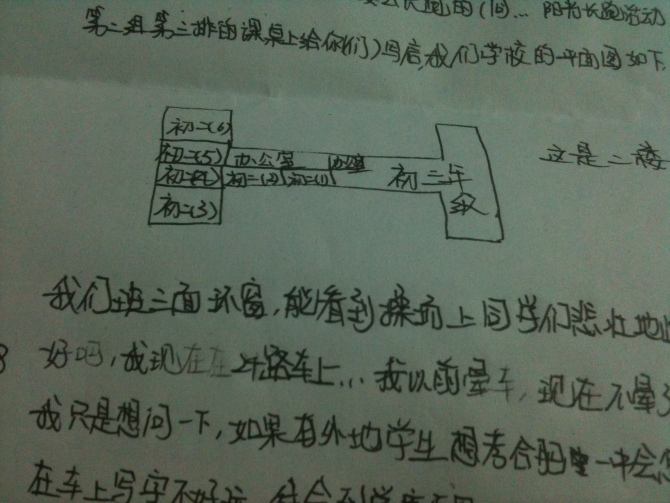 跑的(同... 阳光长跑活动
第二组第三排的课桌上给你们)写信,我们学校的平面图如下.
初二(6)
初二(5) 办公室 办公室
初二(4) 初二(2) 初二(1) 初三年级
初二(3)
这是二楼
我们班三面环窗,能看到操场上同学们悲壮地
好吗,我现在在24路车上...我以前晕车,现在不晕了
我只是想问一下,如果有外地学生想考合肥一中会怎
在车上写字不好